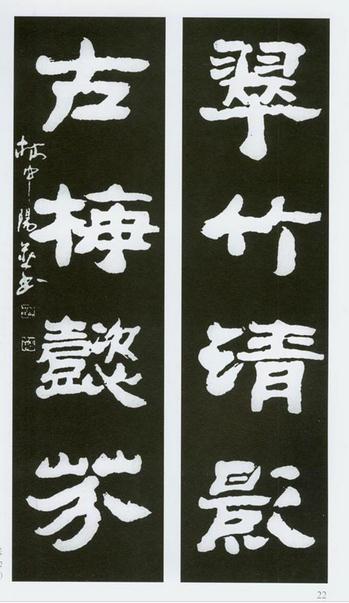 翠竹清影
古梅懿芬
22